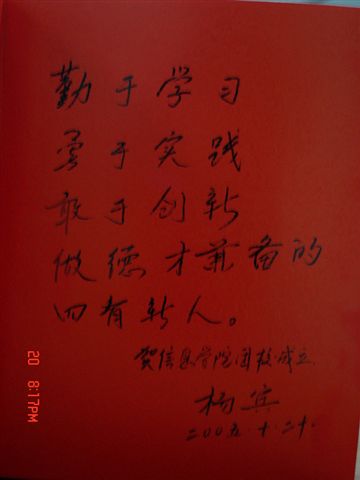 勤于学习
勇于实践
敢于创新
做德才兼备的
四有新人。
贺信息学院团校成立
杨宾
二00五.十.二十.
20 8:17PM